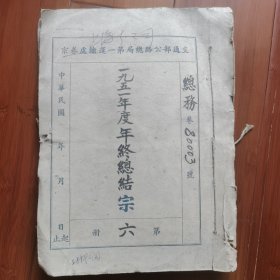 交通部公路總局第一運輸處卷宗
總務卷80003號
一九五一年度年終總結宗六
第 冊
中華民國 年 月 日起止